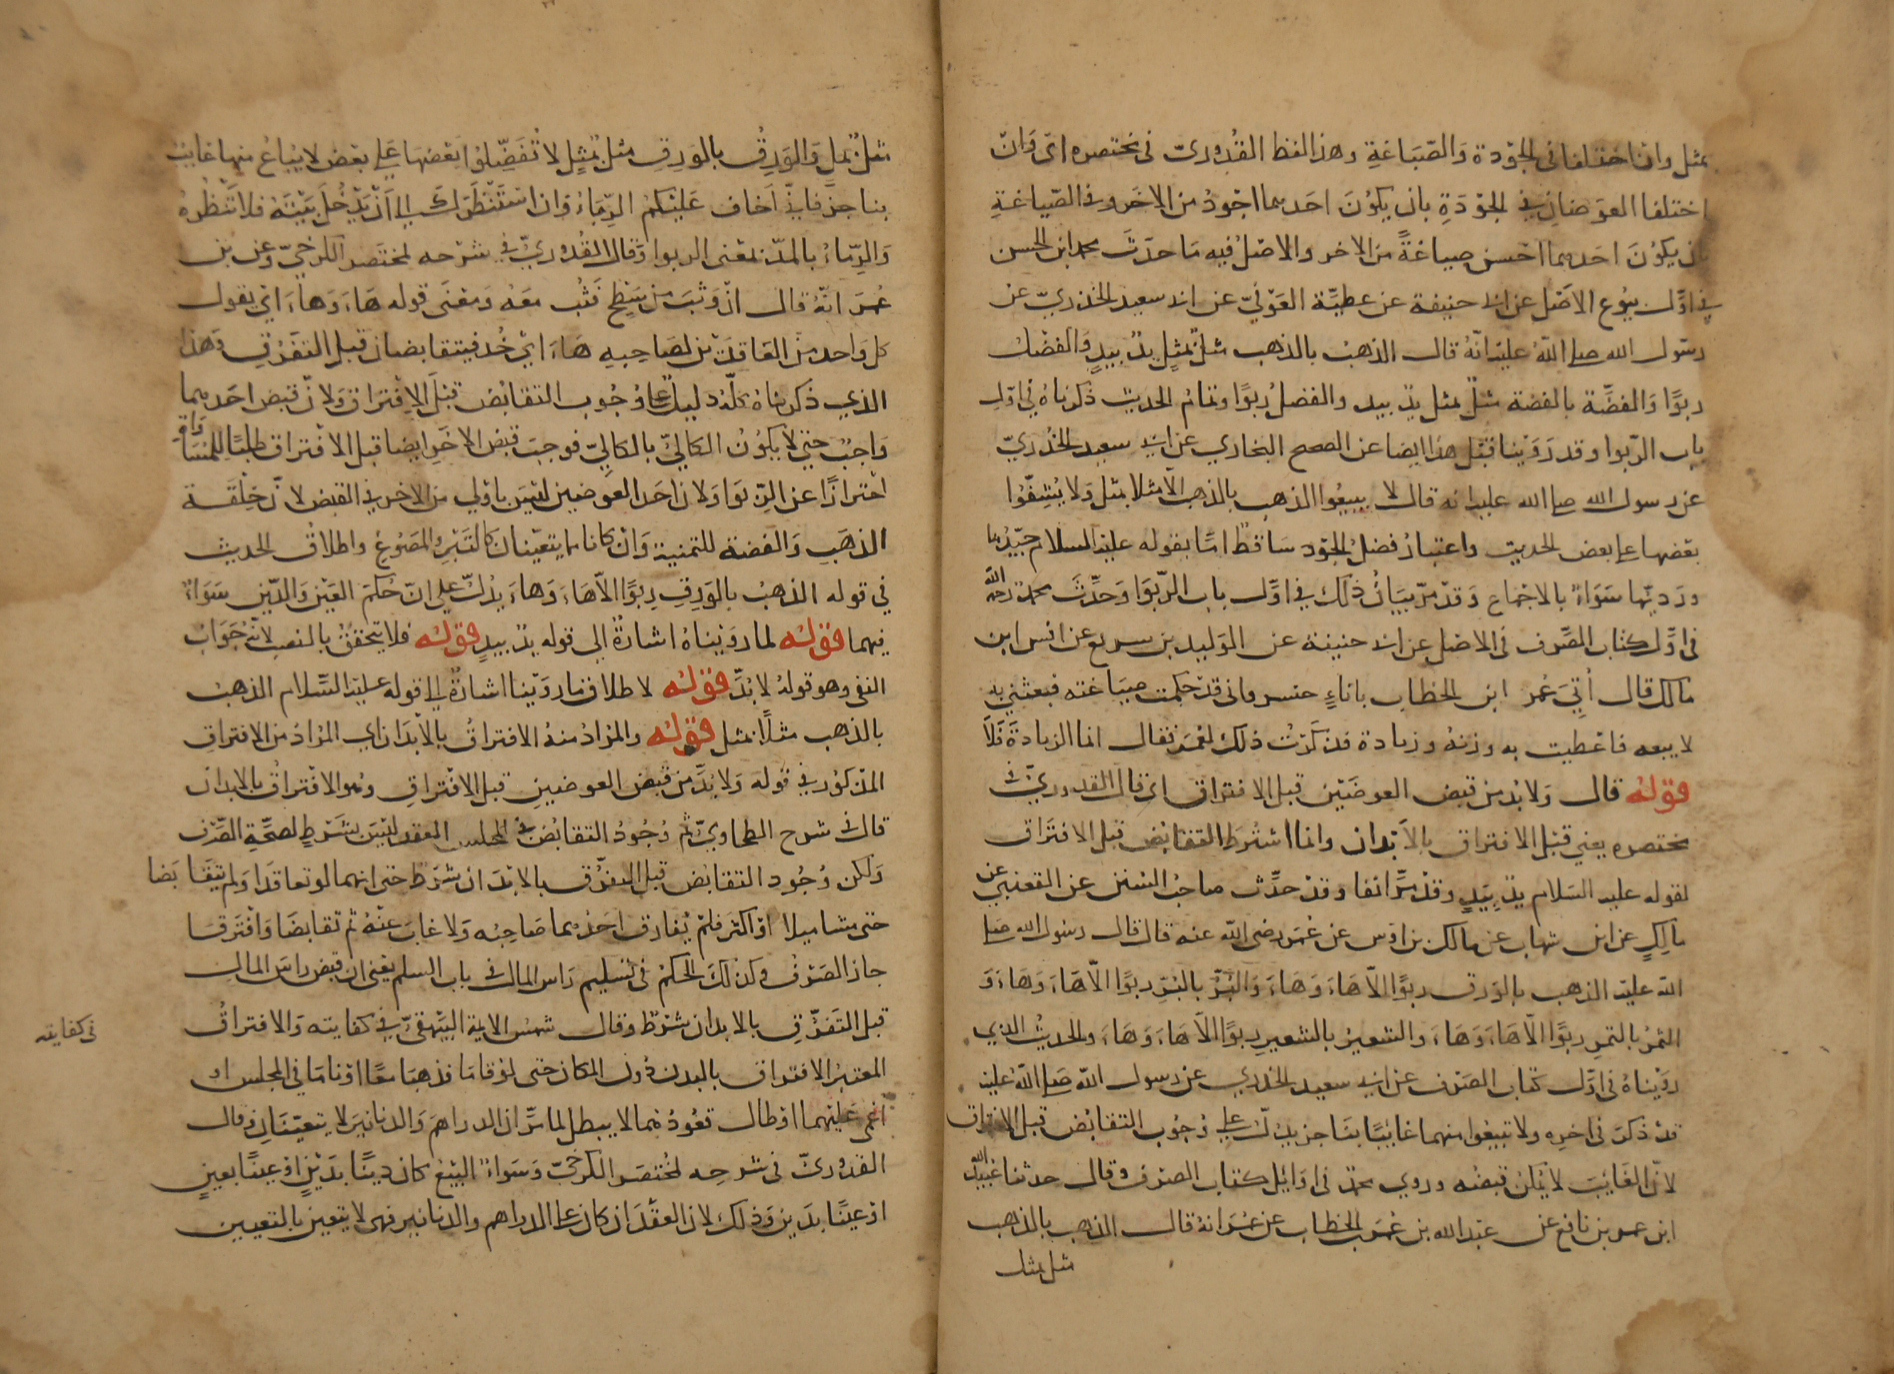 بمثل وان اختلفا في الجَوْدة وَالصّيَاغةِ وهذا لفظ القُدوريّ في مختصره ايْ وَانّ
اختلفا العوَضانِ في الجَوْدَةِ بان يكوُنَ احَدهما اجْودُ من الاخَر وفي الصّيَاغةِ
بان يكوُنَ احَدهما احْسن صِياغةً من الاخر والاصْلُ فيه مَا حدّثَ محمد ابن الحسن
في اوّل بيُوع الاصْل عن ابي حنيفة عن عطيّة العَوْفيّ عن ابي سعيد الخدريّ عن
رسوُل الله صلى اللهُ عليْه انّهُ قال الذهبُ بالذهب مثلٌ بمثلٍ يدٌ بيدٍ وَالفضْل
ربوًا وَالفضّة بالفضة مثلٌ بمثل يدٌ بيد والفضلُ ربوًا وتمامُ الحديث ذكرناهُ في اوّل
باب الرّبوا وقد رَوَيْنا قبْل هذا ايضا عن الصحيح البخاري عن ابي سعيد الخُدريّ
عن رسول الله صلى الله عليه انه قال لا تبيعُوا الذهب بالذهب الّا مثلا بمثل وَلا يُشِفّوُا
بعْضها على بعض الحديث واعتبارُ فضلُ الجوْد سَاقط امّا بقوله عليه السلام جيّدُها
وردِيّها سَوَاءٌ بالاجْماع وَقدْ مرّ بيَانُ ذلك في اوّل باب الرّبوَا وَحدّثَ محمد رحمه الله
في اوّل كتاب الصّرف في الاصْل عن ابي حنيفة عن الوَليد بن سريع عن انس ابن
مالك قال اُتِيَ عُمر ابن الخطاب باناءٍ خسرواني قدْ حُكمت صِيَاغته فبعثني به
لابيعه فاعْطيت به وزنهُ وزيادة فذكرْتُ ذلك لعُمَر فقال امّا الزيادة فَلَا
قوْلهُ قال وَلا بُد من قبض العوضَيْن قبل الافتراق اي قال القدوريّ في
مختصره يعني قبْل الافتراق بالاَبْدان وانما اشتُرِط التقابُض قبل الافتَراق
لقوله عليه السَلام يدٌ بِيَدٍ وقدْ مرّ انفا وقدْ حدّث صاحبُ السُنن عن القعنبي عن
مالِكٍ عن ابن شهاب عن مالك بن اوْس عن عُمَر رضي اللّه عنه قال قال رسوُل الله صلى
اللهُ عليه الذهب بالوَرق ربوًا الّا هَاءَ وَهَاءَ وَالبُرّ بالبُرّ ربوًا الّا هَاءَ وَهَاءَ وَ
التمْرُ بالتمرِ ربوًا الّا هَاءَ وَهَاءَ والشعيرُ بالشعيرِ ربوًا الّا هَاءَ وَهَاءَ والحديثُ الذي
روَيْناهُ في اوّل كتاب الصَرْف عن ابي سعيد الخدري عن رسول اللّه صَلى اللّه عليه
قدْ ذكرَ في اخرِه ولا تبيعُوا منهما غائِبًا بنَاجز يدُلّ على وُجُوب التقابُض قبل الافتراق
لانّ الغَائِبَ لا يُمكنُ قبضُه وروي محمّد في اوَائِل كتاب الصَرْف وقال حدثنا عُبيْد الله
ابن عمر بن نافع عن عبْد الله بن عُمَر بن الخطاب عن عُمَر انهُ قال الذهب بالذهب
مثل بمثل
مثلٌ بمثلٍ وَالوَرِقُ بالوَرِقِ مثلٌ بمثلٍ لا تُفضّلوُا بَعْضهَا على بعْض لا يُبَاعُ منها غايب
بناجزٍ فانيْ اَخاف عَليْكمْ الرِمَاءُ وَان اسْتَنْظرَكَ الى اَنْ يَدْخُلَ بَيْتَهُ فلا تَنْظُرهُ
وَالرِّمَاءُ بالمدّ بمعْنى الربوا وَقال القُدوريّ في شرْحه لمختصر الكرْخيّ وعن بن
عُمَرَ انّهُ قال انْ وَثبَ من سَطحٍ فَثِبْ معَهُ وَمعْنَى قوله هَاءَ وَهَاءَ ايْ يقول
كل وَاحد منَ العَاقدَيْن لصَاحِبِهِ هَاءَ ايْ خُذ فيتقابضان قبْل التفرّق وَهذا
الذي ذكرْناهُ كلّهُ دليلٌ على وُجُوب التقابُض قبْلَ الافْتراق وَلانّ قبضَ احَدهما
وَاجبٌ حتى لا يكوُنُ الكاليُّ بالكاليّ فوجبَ قبض الاخَر ايضا قبل الافْتراق طلبًا للمُسَاواة
احْترازًا عن الرّبوَا وَلانّ احَد العوَضين ليْسَ باوْلى من الاخر في القبض لانّ خلقَة
الذهَبِ وَالفضة للثمنية وَانْ كانا مما يتعيّنان كالتبْرِ وَالمصُوغ واطلاقُ الحديث
في قوله الذهبُ بالوَرِقِ رِبوًا الّا هَاءَ وَهَاءَ يدُلّ على انّ حُكمَ العَيْن وَالدّيْن سَوَاءٌ
فيهما قوْلهُ لما روَيْناهُ اشارةٌ الى قوله يدٌ بيدٍ قوْلهُ فلا يتحققُ بالنصب لانّهُ جَوَابُ
النفي وهو قولهُ لا بُدَّ قوْلهُ لاطلاق ما روَيْنا اشارةٌ الى قوله عليْه السّلام الذهبُ
بالذهب مثلًا بمثل قوْلهُ والمرَادُ منهُ الافتراقُ بالاَبْدَان اي المرَادُ من الافتراق
المذكوُر في قوله وَلا بُدّ من قبض العوضين قبل الافْتراقِ وهُو الافْتراقُ بالابدان
قال في شرح الطحاويّ ثم وُجُودُ التقابُض في المجلس المعقود ليْسَ بشَرْطٍ لصحّة الصّرْف
وَلكن وُجُود التقابُض قبْل التفرّق بالابْدَان شرْط حتى انهما لوْ تعاقدَا وَلم يتقَابَضا
حتى مشا ميلا اوْ اكثر فلمْ يُفارق احَدُهما صَاحِبهُ وَلا غابَ عَنْهُ ثم تقابضَا وَافترَقا
جاز الصَرْفُ وكذلكَ الحكمُ في تسليم رَاس المال في باب السلم يعْني ان قبض راسَ المال
قبل التَفرّق بالابدان شرْطٌ وقال شمسُ الايمة البَيْهقيّ في كفايته وَالافتراقُ
المعتبرُ الافتراق بالبدن دُون المكان حتى لوْ قامَا فذهبَا معًا اوْ نامَا في المجلس او
اغمي عَليْهما اوْ طال قعُودهُما لا يبطل لما مرّ ان الدراهمَ وَالدنانيرَ لا يتعيّنَان وَقال
القدوريّ في شرحه لمُختصَر الكرخيّ وَسَوَاءٌ البَيْعُ كان ديْنًا بدَيْنٍ اوْ عيْنًا بعينٍ
اوْ عيْنًا بدَين وَذلك لانّ العقْدَ ان كان على الدراهم والدنانير فهي لا يتعين بالتعيين
في كفايته